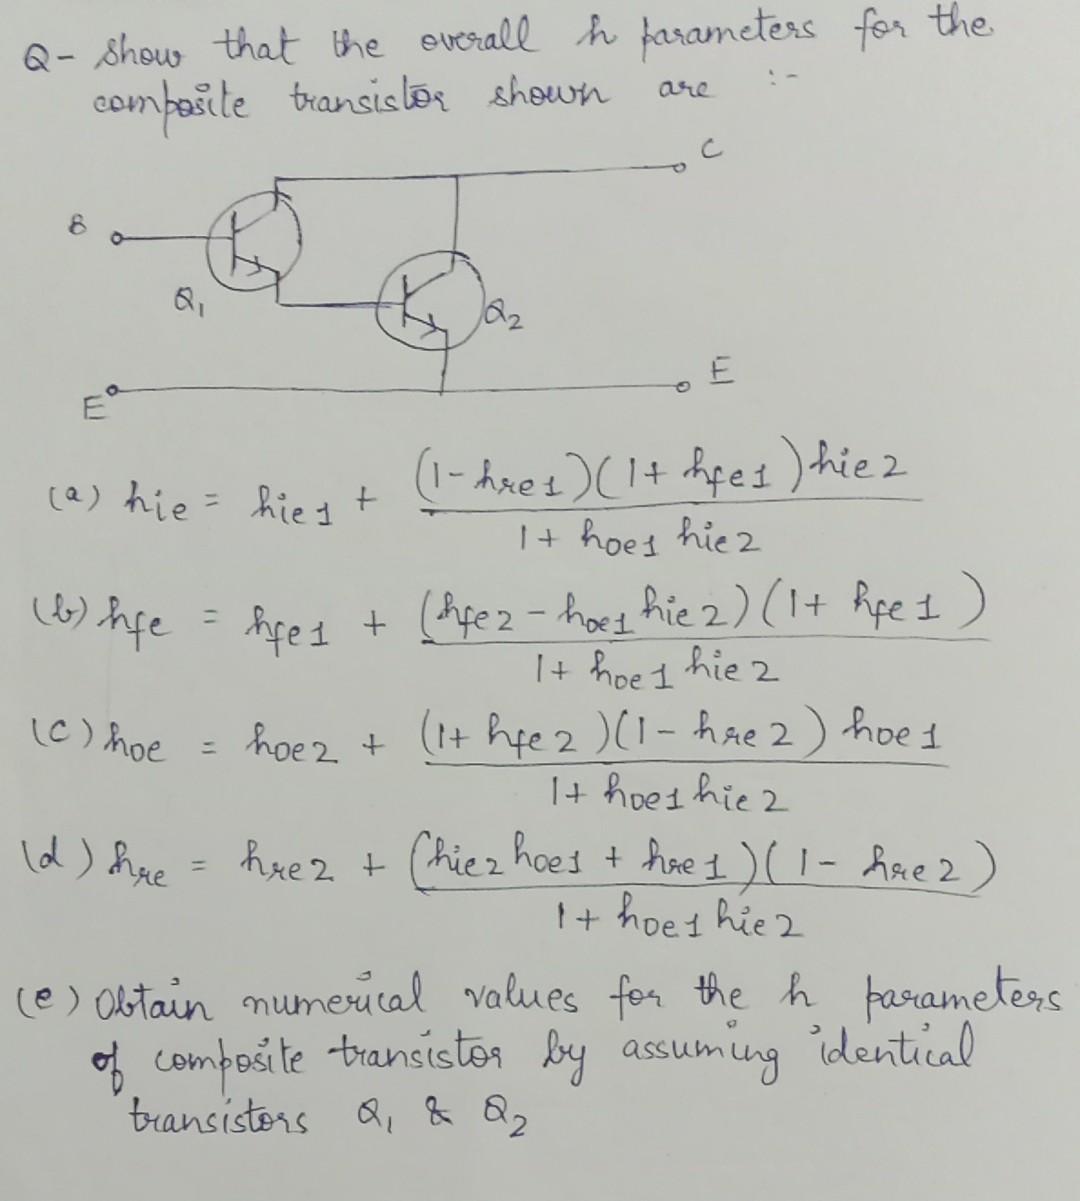 Q- Show that the overall h parameters for the
composite transistor shown are :-
C
B
Q₁
Q₂
E
E
(a) hie = hie1 + (1-hre1)(1+ hfe1)hie2 / 1+ hoe1 hie2
(b) hfe = hfe1 + (hfe2 - hoe1 hie2)(1+ hfe1) / 1+ hoe1 hie2
(c) hoe = hoe2 + (1+ hfe2)(1- hre2) hoe1 / 1+ hoe1 hie2
(d) hre = hre2 + (hie2 hoe1 + hre1)(1- hre2) / 1+ hoe1 hie2
(e) Obtain numerical values for the h parameters
of composite transistor by assuming identical
transistors Q₁ & Q₂